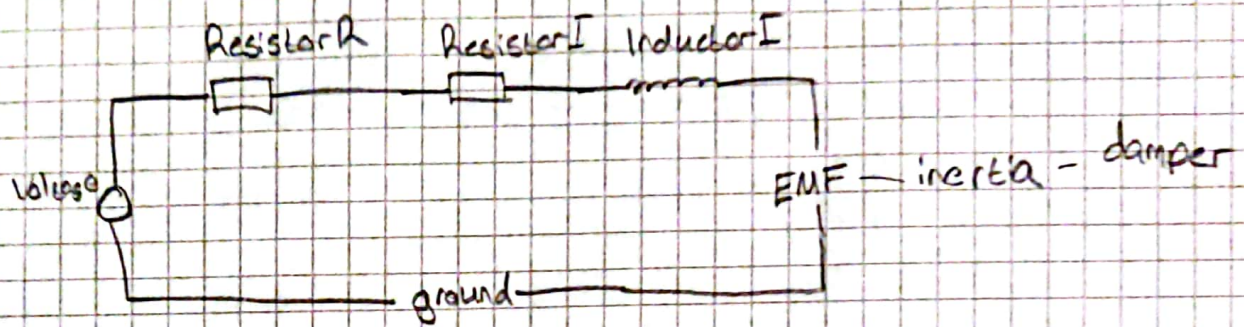 ResistorR ResistorI InductorI
EMF — inertia - damper
ground